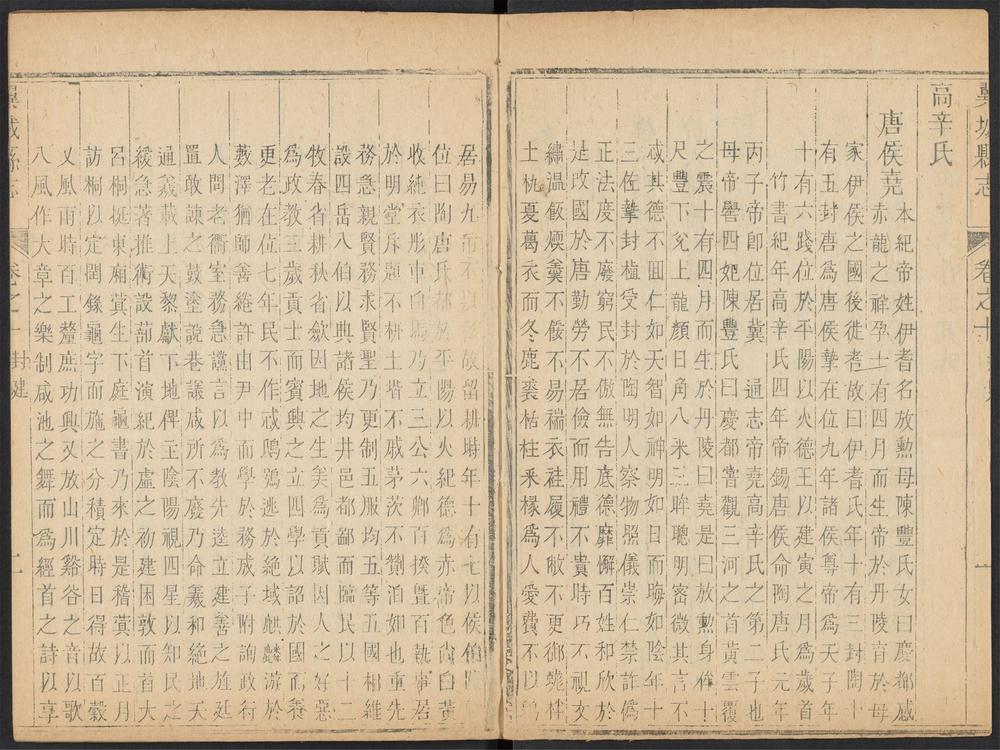 縣志
卷之十
高辛氏
唐侯堯
本紀帝姓伊耆名放勲母陳豐氏女曰慶都感
赤龍之祥孕十有四月而生帝於丹陵育於母
家伊侯之國後徙耆故曰伊耆氏年十有三封陶十
有五封唐為唐侯摯在位九年諸侯尊帝為天子年
十有六踐位於平陽以火德王以建寅之月為歲首
竹書紀年高辛氏四年帝錫唐侯命陶唐氏元年
丙子帝即位居冀　通志帝堯高辛氏之第二子也
母帝嚳四妃陳豐氏曰慶都嘗觀三河之首黃雲覆
之震十有四月而生於丹陵曰堯是曰放勲身侔十
尺豐下兌上龍顏日角八釆三眸聰明密微其言不
忒其德不回仁如天智如神明如日而晦如陰年十
三佐摯封植受封於陶明人察物照儀崇仁禁詐偽
正法度不廢窮民不傲無告底德靡懈百姓和欣於
是改國於唐勤勞不居儉而用禮不貴時巧不視文
繡温飯煗羹不餿不易褍衣袿履不敝不更
土杋戞葛衣而冬鹿裘栝柱釆椽為人愛費不以
居易九
故留耕時年十有七以侯伯
位曰陶唐氏都於平陽以火紀德為赤帝色尚白黃
收純衣彤車白馬乃立三公六卿百揆暨百執事居
於明堂斥題不枅土堦不戚茅茨不剪洎如也重先
務急親賢務求賢聖乃更制五服均五等五國相維
設四岳八伯以典諸侯均井邑都鄙而臨民以十二
牧春省耕秋省斂因地之生美為貢賦因人之好惡
為政教三歲貢士而賓興之立四學以詔於國而養
更老在在位七年民不作忒鴟鴞逃於絶域麒麟游於
藪澤猶師善綣許由尹中而學於務成子附詢政於
人問老衢室務急讜言以為教先逵立建善之旌廷
置敢諫之鼓塗說巷議咸所不廢乃命羲和絶地天
通羲載上天黎獻下地俾主陰陽視四星以知民之
緩急著推術設蔀首演紀於虛之初建困敦而首大
呂桐挺東廂蓂生下庭龜書乃來於是稽蓂以正月
訪桐以定閏錄龜字而施之分積定時日得故百穀
乂風雨時百工釐庶功興爻放山川谿谷之音以歌
八風作大章之樂制咸池之舞而為經首之詩以享
卷之十　封建　二